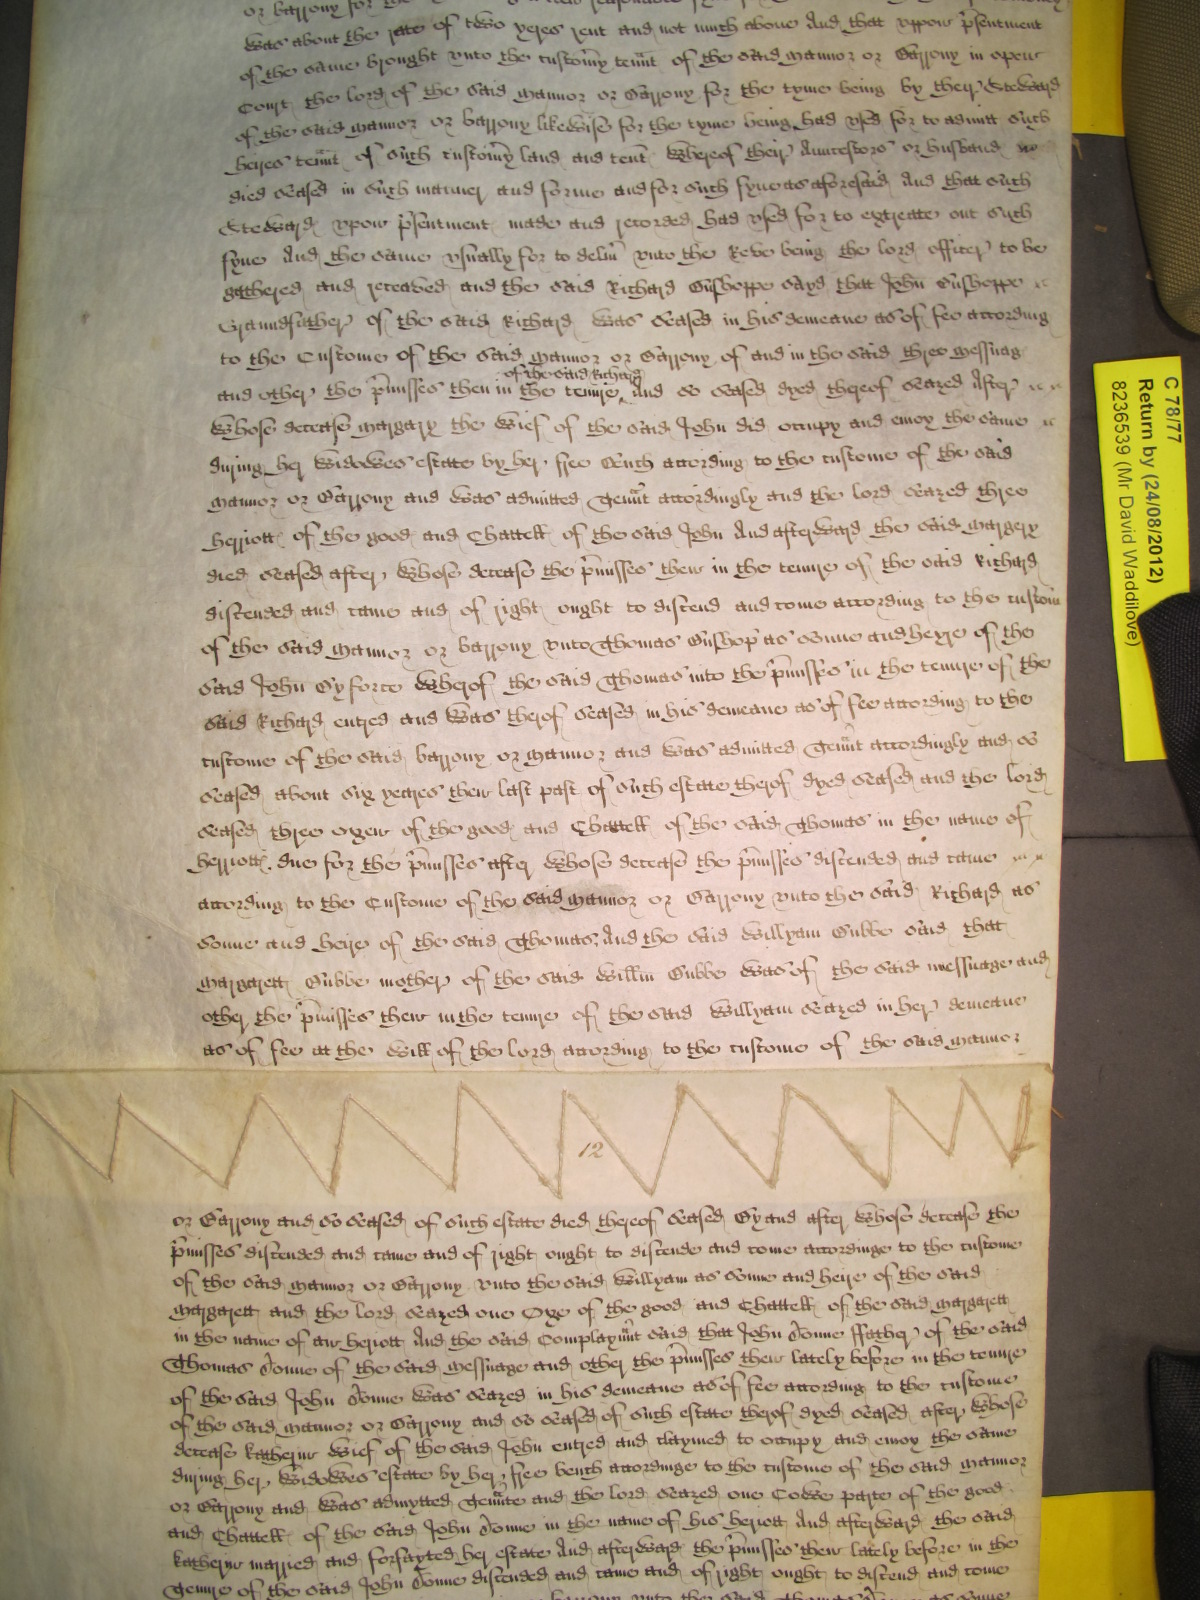 was about the rate of two yeres rent and not much above And that uppon p̃sentment
of the same brought unto the custom̃y ten̄nt of the said mannor or Barrony in open
Court the lord of the said mannor or Barrony for the tyme being by their Steward
of the said mannor or barrony likewise for the tyme being had used for to admitt such
heires ten̄nt of such custom̃y land and ten̄t Whereof their Auncestors or husband
died seased in such manner and forme and for such fyne as aforesaid And that such
Steward uppon p̃sentment made and recorded had used for to extreate out such
fyne And the same usually for to delivr̃ unto the Reve being the lord officer to be
gathered and receaved and the said Richard Bushoppe sayd that John Bushoppe
Grandfather of the said Richard was seased in his demeane as of fee according
to the Custome of the said mannor or Barrony of and in the said three messuag
of the said Richard
and other the p̃misses then in the tenure And so seased dyed thereof seazed After
Whose decease Margery the Wief of the said John did occupy and enioy the same
during her Widowes estate by her free Bench according to the custome of the said
mannor or Barrony and was admitted Ten̄nt accordingly and the lord seazed three
herriott of the good and Chattell of the said John And afterward the said Margery
died seased after Whose decease the p̃misses then in the tenure of the said Richard
discended and came and of right ought to discend and come according to the custom
of the said mannor or barrony unto Thomas Bushop as sonne and heyre of the
said John By force Wherof the said Thomas into the p̃misses in the tenure of the
said Richard entred and was therof seased in his demeane as of fee according to the
custome of the said barrony or mannor and was admitted Ten̄nt accordingly and so
seased about six yeares then last past of such estate therof dyed seased and the lord
seased three oxen of the good and Chattell of the said Thomas in the name of
herriott due for the p̃misses after Whose decease the p̃misses discended and came
according to the Custome of the said mannor or Barrony unto the said Richard as
sonne and heire of the said Thomas, And the said Willyam Gubbe said that
Margarett Gubbe mother of the said Willm Gubbe was of the said messuage and
other the p̃misses then in the tenure of the said Willyam seazed in her demeane
as of fee at the will of the lord according to the custome of the said mannor
12
or Barrony and so seased of such estate died thereof seased By and after Whose decease the
p̃misses discended and came and of right ought to discende and come accordinge to the custome
of the said mannor or Barrony unto the said Willyam as sonne and heire of the said
Margarett and the lord seazed one Oxe of the good and Chattell of the said Margarett
in the name of an heriott And the said Complayn̄nt said that John Tonne ffather of the said
Thomas Tonne of the said messuage and other the p̃misses then lately before in the tenure
of the said John Tonne was seazed in his demeane as of fee according to the custome
of the said mannor or Barrony and so seased of such estate therof dyed seased after whose
decease Katheryn Wief of the said John entred and claymed to occupy and enioy the same
during her Widowes estate by her free bench accordinge to the custome of the said mannor
or Barrony and was admytted Ten̄nte and the lord seazed one Cowe parte of the good
and Chattell of the said John Tonne in the name of his heriott And afterward the said
Katheryn married and forfayted her estate And afterward the p̃misses then lately before in the
Tenure of the said John Tonne discended and came and of right ought to discend and come
C 78/77
Return by (24/08/2012)
8236539 (Mr David Waddilove)